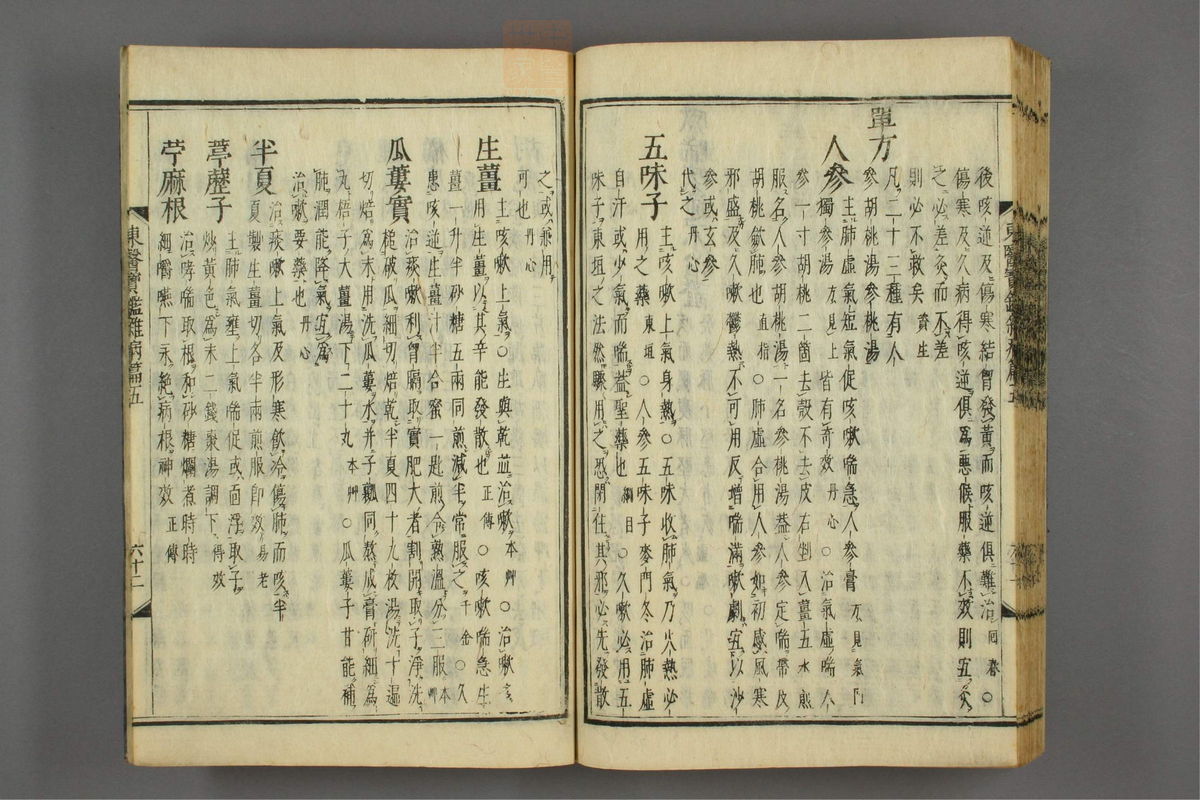 後咳逆及傷寒結胷發黃而咳逆俱難治回春○
傷寒及久病得咳逆俱爲惡候服藥不效則宜灸
之必差灸而不差
則必不救矣資生
單方
凡二十三種有人
參胡桃湯參桃湯
人參主肺虛氣短氣促咳嗽喘急人參膏方見氣門
獨參湯方見上皆有奇效丹心○治氣虛喘人
參一寸胡桃二箇去殼不去皮右剉入薑五水煎
服名人參胡桃湯一名參桃湯盖人參定喘帶皮
胡桃歛肺也直指○肺虛合用人參如初感風寒
邪盛及久嗽鬱熱不可用反增喘滿嗽劇宜以沙
參或玄參
代之丹心
五味子主咳嗽上氣身熱○五味收肺氣乃火熱必
用之藥東垣○人參五味子麥門冬治肺虛
自汗或少氣而喘盖聖藥也綱目○久嗽必用五
味子東垣之法然驟用之恐閉住其邪必先發散
之或兼用
可也丹心
生薑主咳嗽上氣○生與乾並治嗽本艸○治嗽多
用生薑以其辛能發散也正傳○咳嗽喘急生
薑一升半砂糖五兩同煎減半常服之千金○久
患咳逆生薑汁半合蜜一匙煎令熟溫分三服本艸
瓜蔞實治痰嗽利胷膈取實肥大者割開取子淨洗
槌破瓜細切焙乾半夏四十九枚湯洗十遍
切焙爲末用洗瓜蔞水并子瓤同熬成膏研細爲
丸梧子大薑湯下二十丸本艸○瓜蔞子甘能補
肺潤能降氣宜爲
治嗽要藥也丹心
半夏治痰嗽上氣及形寒飮冷傷肺而咳半
夏製生薑切各半兩煎服卽效易老
葶藶子主肺氣壅上氣喘促或面浮取子
炒黃色爲末二錢棗湯調下得效
苧麻根治哮喘取根和砂糖爛煮時時
細嚼嚥下永絶病根神效正傳
東醫寶鑑雜病篇五
六十二